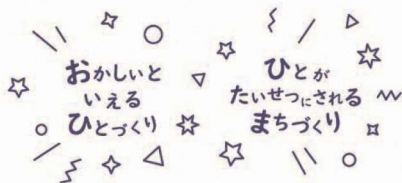 おかしいと
いえる
ひとづくり
ひとが
たいせつにされる
まちづくり